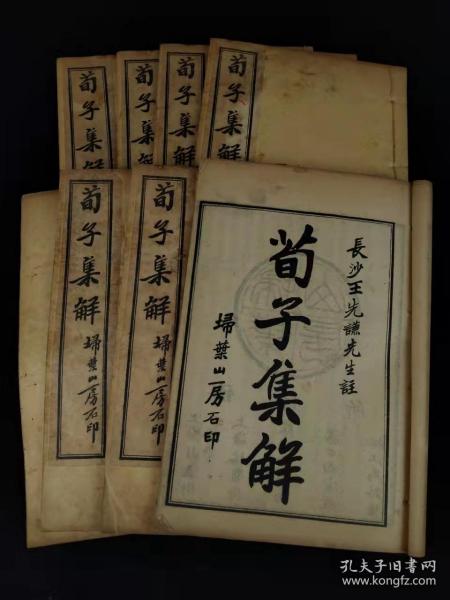 荀子集解
荀子集解
荀子集解
荀子集解
荀子集解
掃葉山房石印
荀子集解
掃葉山房石印
長沙王先謙先生註
荀子集解
掃葉山房石印
孔夫子旧书网
www.kongfz.com